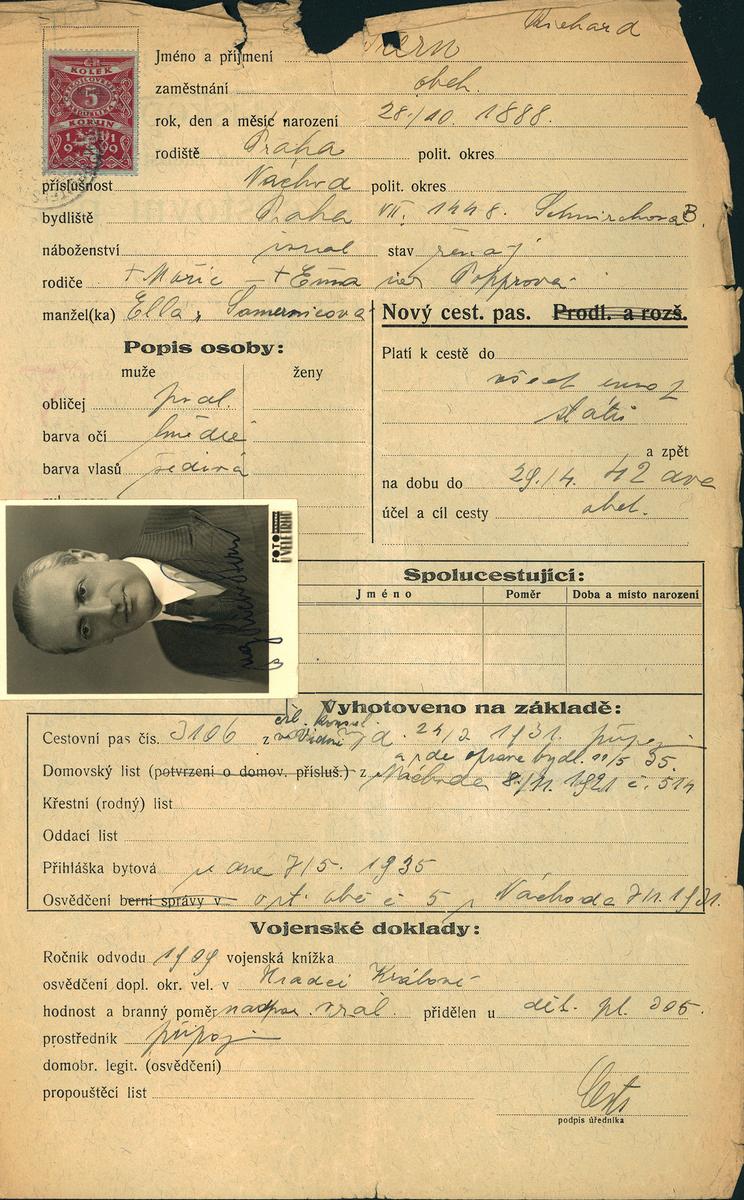 Richard
Jméno a příjmení
KOLEK
5
KORUN
1919
zaměstnání obch.
rok, den a měsíc narození 28./10. 1888.
rodiště Praha polit. okres
příslušnost Náchod polit. okres
bydliště Praha VII. 1448. Schnirchova
náboženství israel stav ženatý
rodiče + Moric + Ema Popprová
manžel(ka) Ella
Nový cest. pas. Prodl. a rozš.
Popis osoby:
muže ženy
Platí k cestě do
všech
států
obličej
barva očí hnědé
barva vlasů šedivá
a zpět
na dobu do 29./4. 42
účel a cíl cesty obch.
FOTO
U VELETRHU
Spolucestující:
Jméno Poměr Doba a místo narození
Vyhotoveno na základě:
Cestovní pas čís. 3106 z ve Vídni d. 1931.
bydl. 11/5 35.
Domovský list (potvrzení o domov. přísluš.) z Náchoda 8./11. 1921 č. 514
Křestní (rodný) list
Oddací list
Přihláška bytová ze dne 7/5. 1935
Osvědčení berní správy v č 5 Náchoda 1931.
Vojenské doklady:
Ročník odvodu 1909 vojenská knížka
osvědčení dopl. okr. vel. v Hradci Králové
hodnost a branný poměr přidělen u děl. pl. 305.
prostředník
domobr. legit. (osvědčení)
propouštěcí list
podpis úředníka